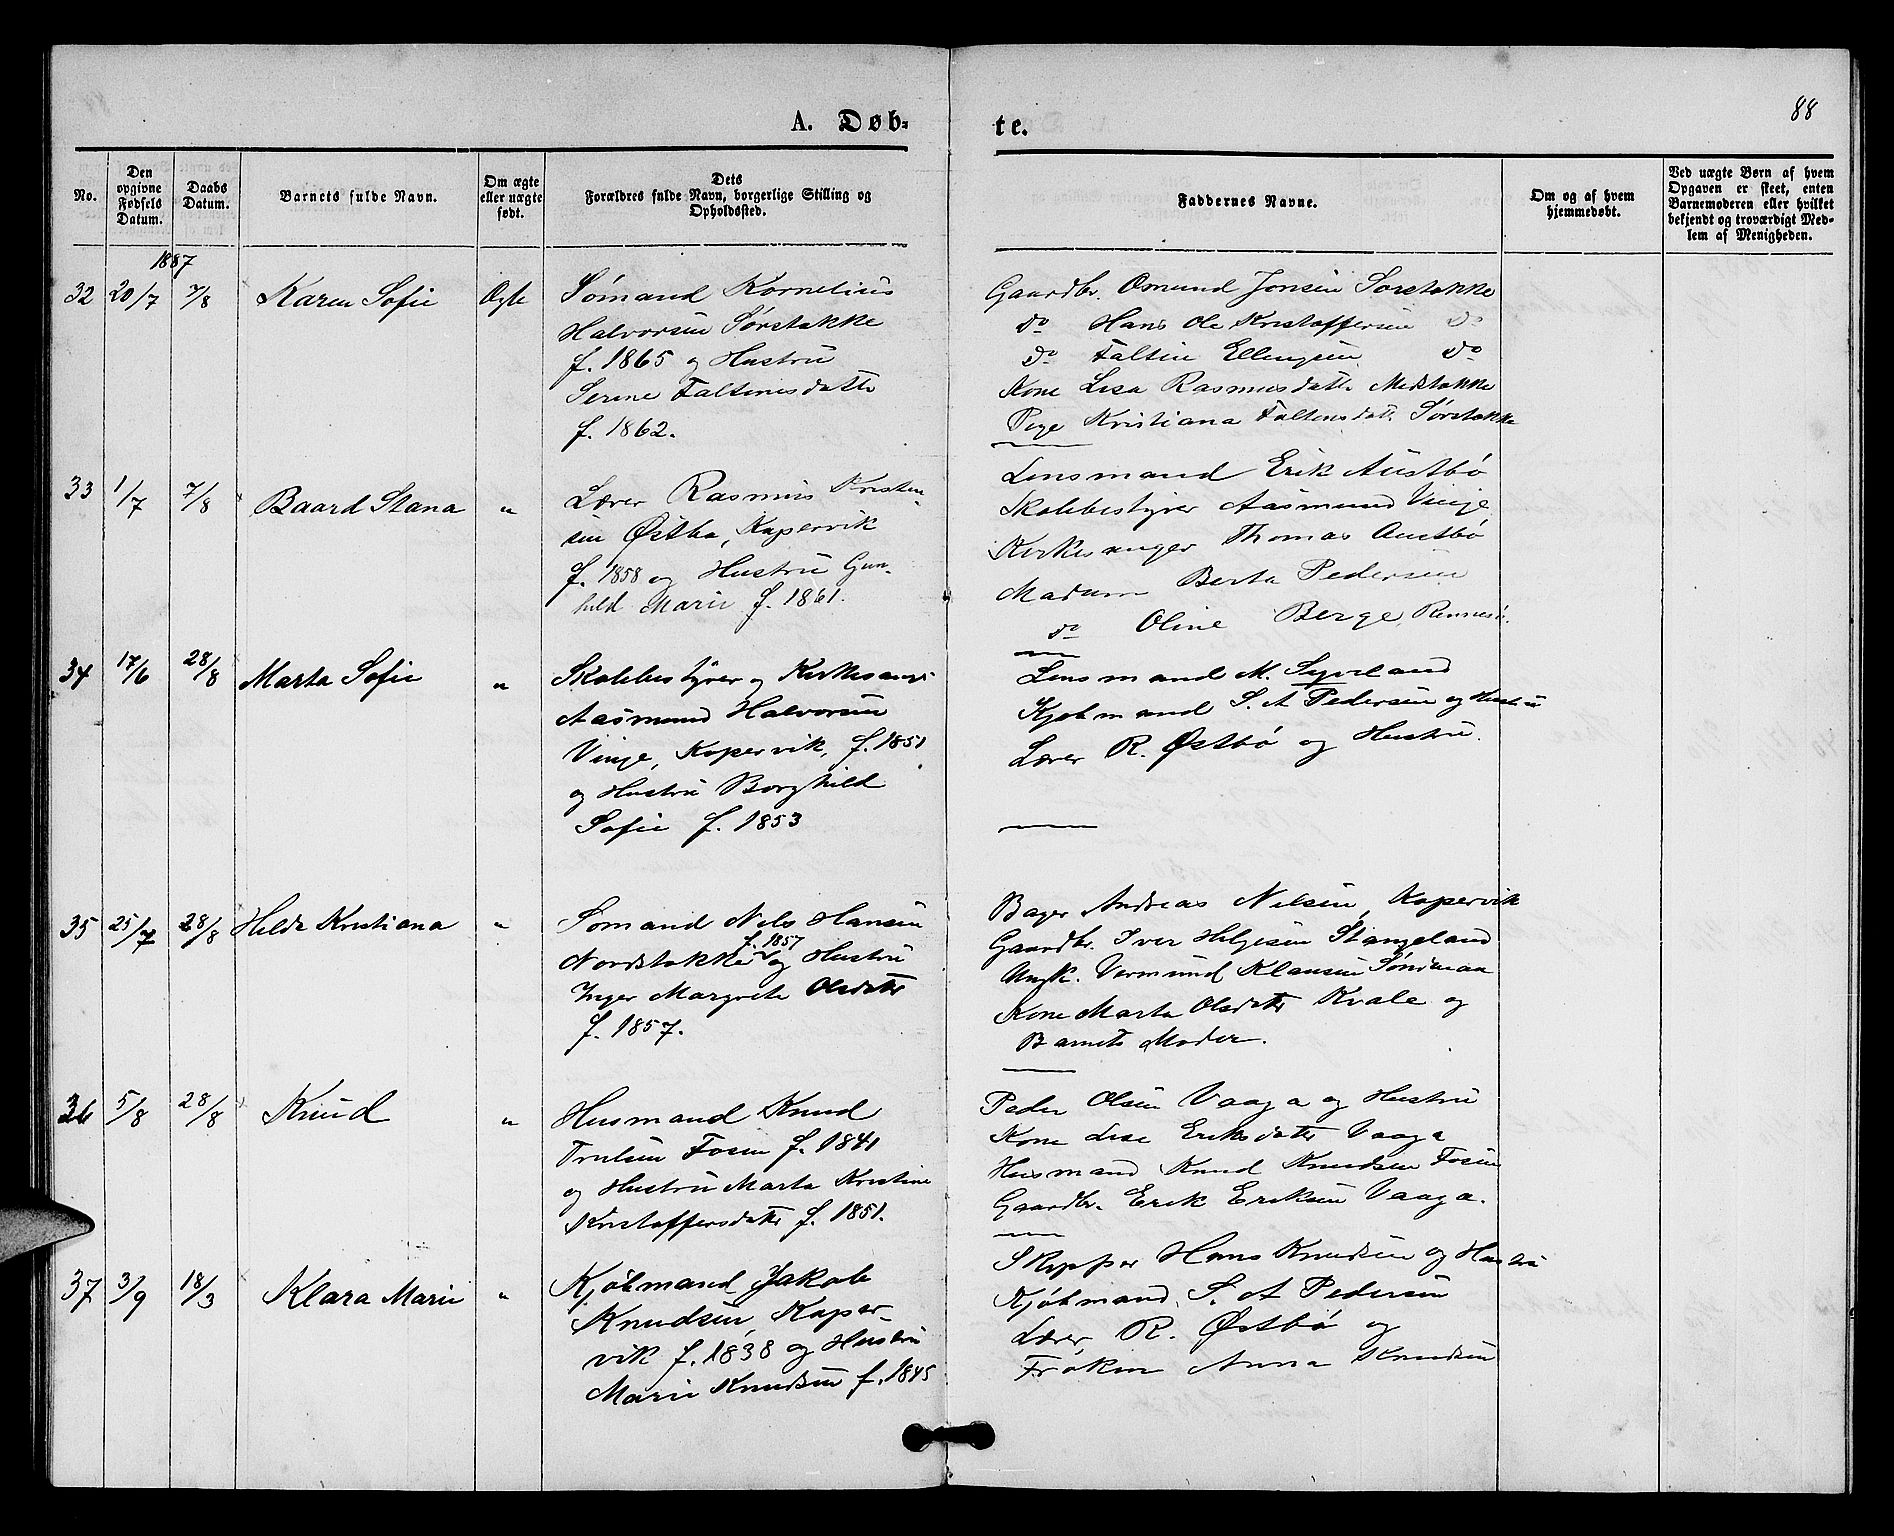 88
A. Døb-
te.
No.
Den opgivne Fødsels Datum.
Daabs Datum.
Barnets fulde Navn.
Om ægte eller uægte født.
Dets Forældres fulde Navn, borgerlige Stilling og Opholdssted.
Faddernes Navne.
Om og af hvem hjemmedøbt.
Ved uægte Børn af hvem Opgaven er skeet, enten Barnemoderen eller hvilket bekjendt og troværdigt Medlem af Menigheden.
1887
32 20/7 7/8 Karen Sofie Ægte
Sømand Kornelius
Halvorsen Sørstokke
f. 1865 og Hustru
Serine Faltinsdatte
f. 1862.
Gaardbr. Osmund Jonsen Sørstokke
do Hans Ole Kristoffersen do
do Faltin Ellingsen do
Kone Lisa Rasmusdatt. Medstokke
Pige Kristiana Faltensdatt. Sørstokke
33 1/7 7/8 Baard Stana "
Lærer Rasmus Kristen-
sen Østbø, Kopervik
f. 1858 og Hustru Gun-
hild Marie f. 1861.
Lensmand Erik Austbø
Skolebestyrer Aasmund Vinje
Kirkesanger Thomas Austbø
Madam Berta Pedersen
do Oline Berge, Rennesø.
34 17/6 28/8 Marta Sofie "
Skolebestyrer og Kirkesang.
Aasmund Halvorsen
Vinje, Kopervik, f. 1851
og Hustru Borghild
Sofie f. 1853
Lensmand M. Lyvland
Kjøbmand S. A Pedersen og Hustru
Lærer R. Østbø og Hustru.
35 25/7 28/8 Helde Kristiana "
Sømand Nils Hansen
f. 1857
Nordstokke og Hustru
Inger Margrete Olsdatte
f. 1857.
Bager Andreas Nilsen, Kopervik
Gaardbr. Iver Helgesen Stangeland
Ungk. Vermund Klausen
Kone Marta Olsdatte Kvale og
Barnets Moder.
36 5/8 28/8 Knud "
Husmand Knud
Trulsen Fosen f. 1841
og Hustru Marta Kristine
Kristoffersdatte f. 1851.
Peder Olsen Vaaga og Hustru
Kone Lise Eriksdatte Vaaga
Husmand Knud Knudsen Fosen
Gaardbr. Erik Eriksen Vaaga.
37 3/9 18/3 Klara Marie "
Kjøbmand Jakob
Knudsen Koper-
vik f. 1838 og Hustru
Marie Knudsen f. 1845
Skipper Hans Knudsen og Hustru
Kjøbmand S. A Pedersen
Lærer R. Østbø og
Frøken Anna Knudsen